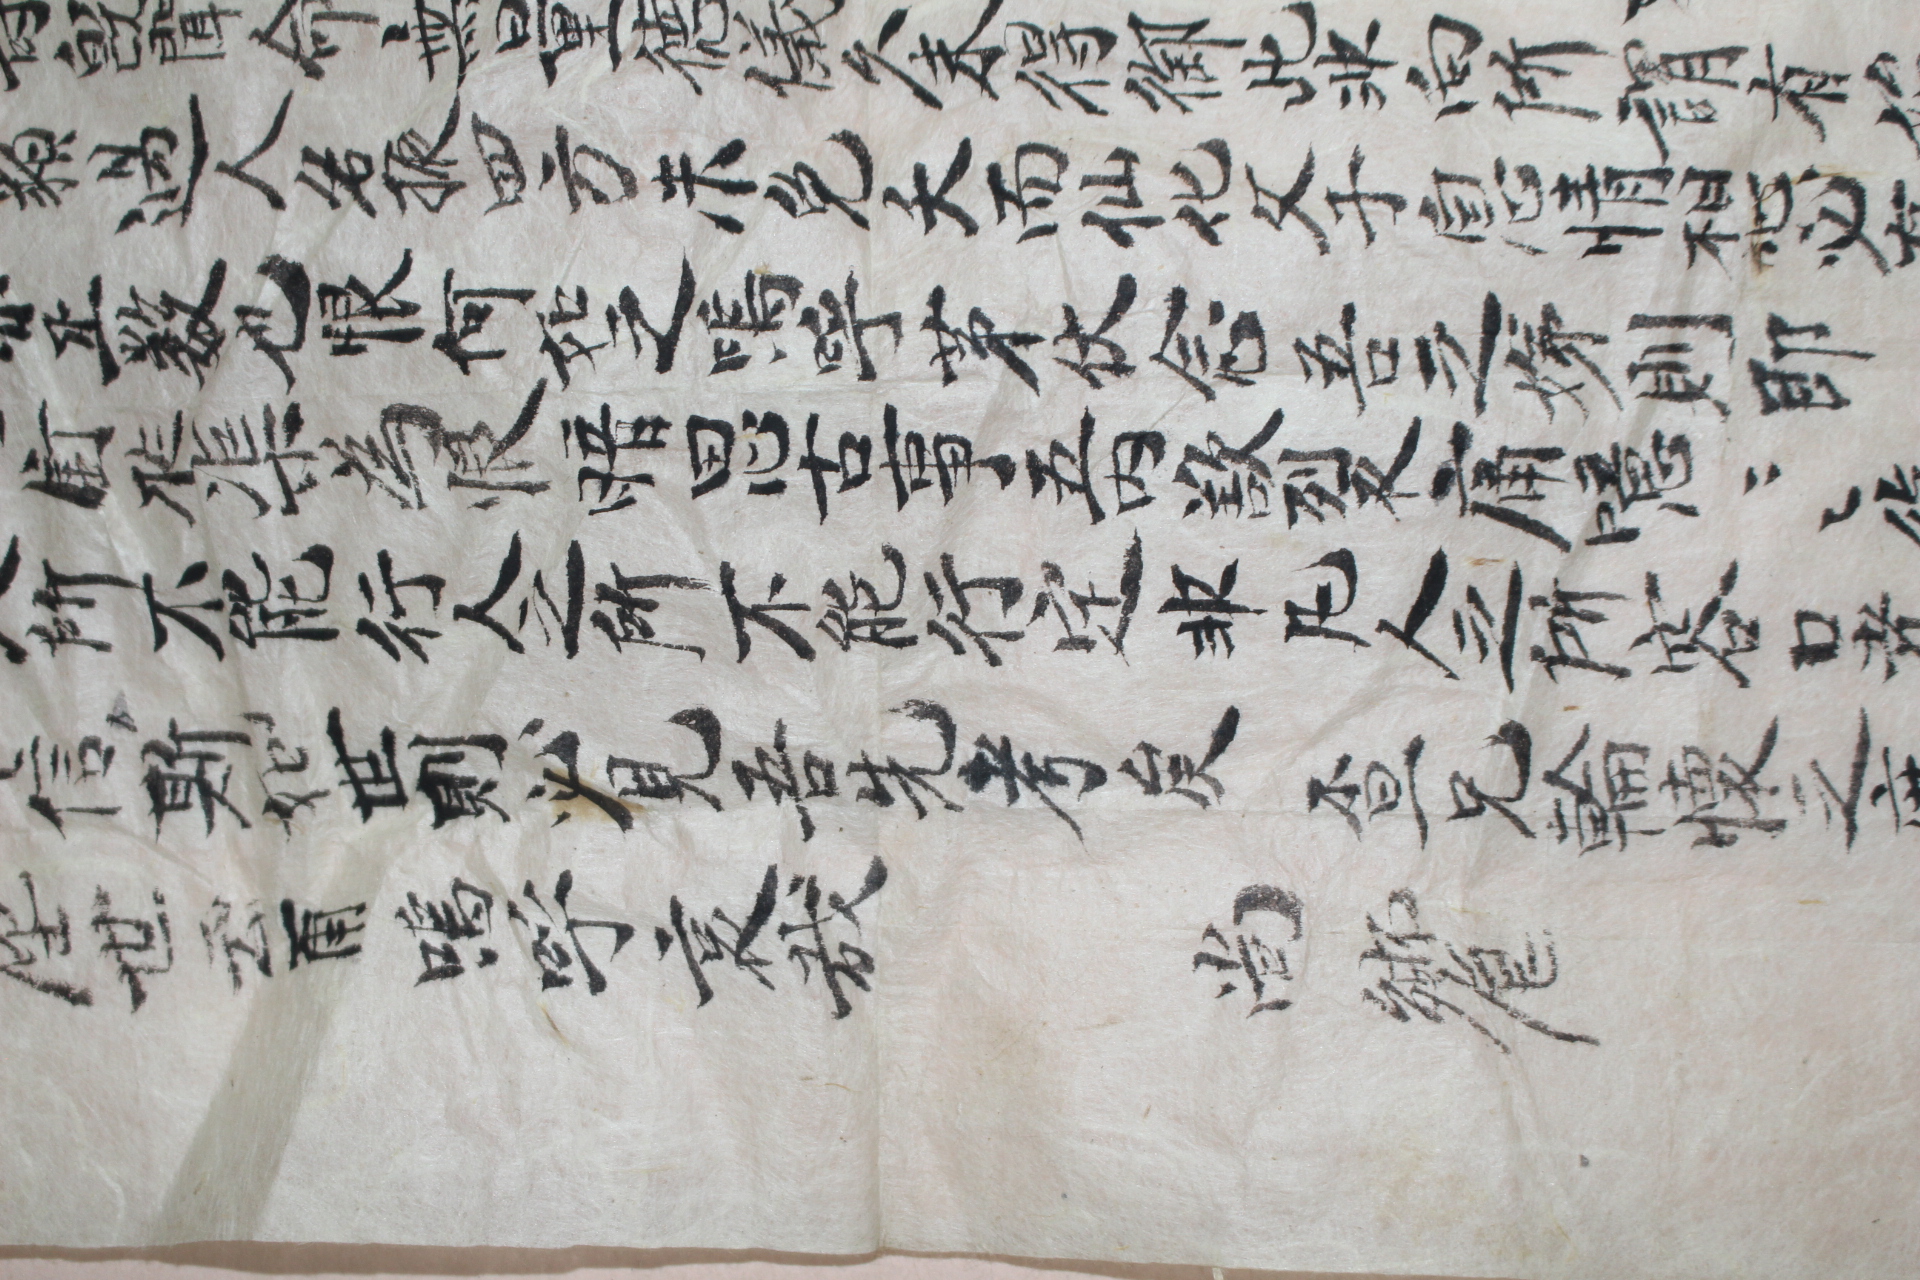 旣聞命無量德儀久未得御此非向所謂有
穎過人名振四方未免夭而仙化父子息情相必
正數也恨何如之嗚呼茅伏念吾之娣則即
渠為恨暗思古事五內裂痛噫〻〻
所不能行人之所不能行定非凡人之所容口者
信斯如世則必見吾先考矣 兄輪懷之
世云爾嗚呼哀哉 尚饗